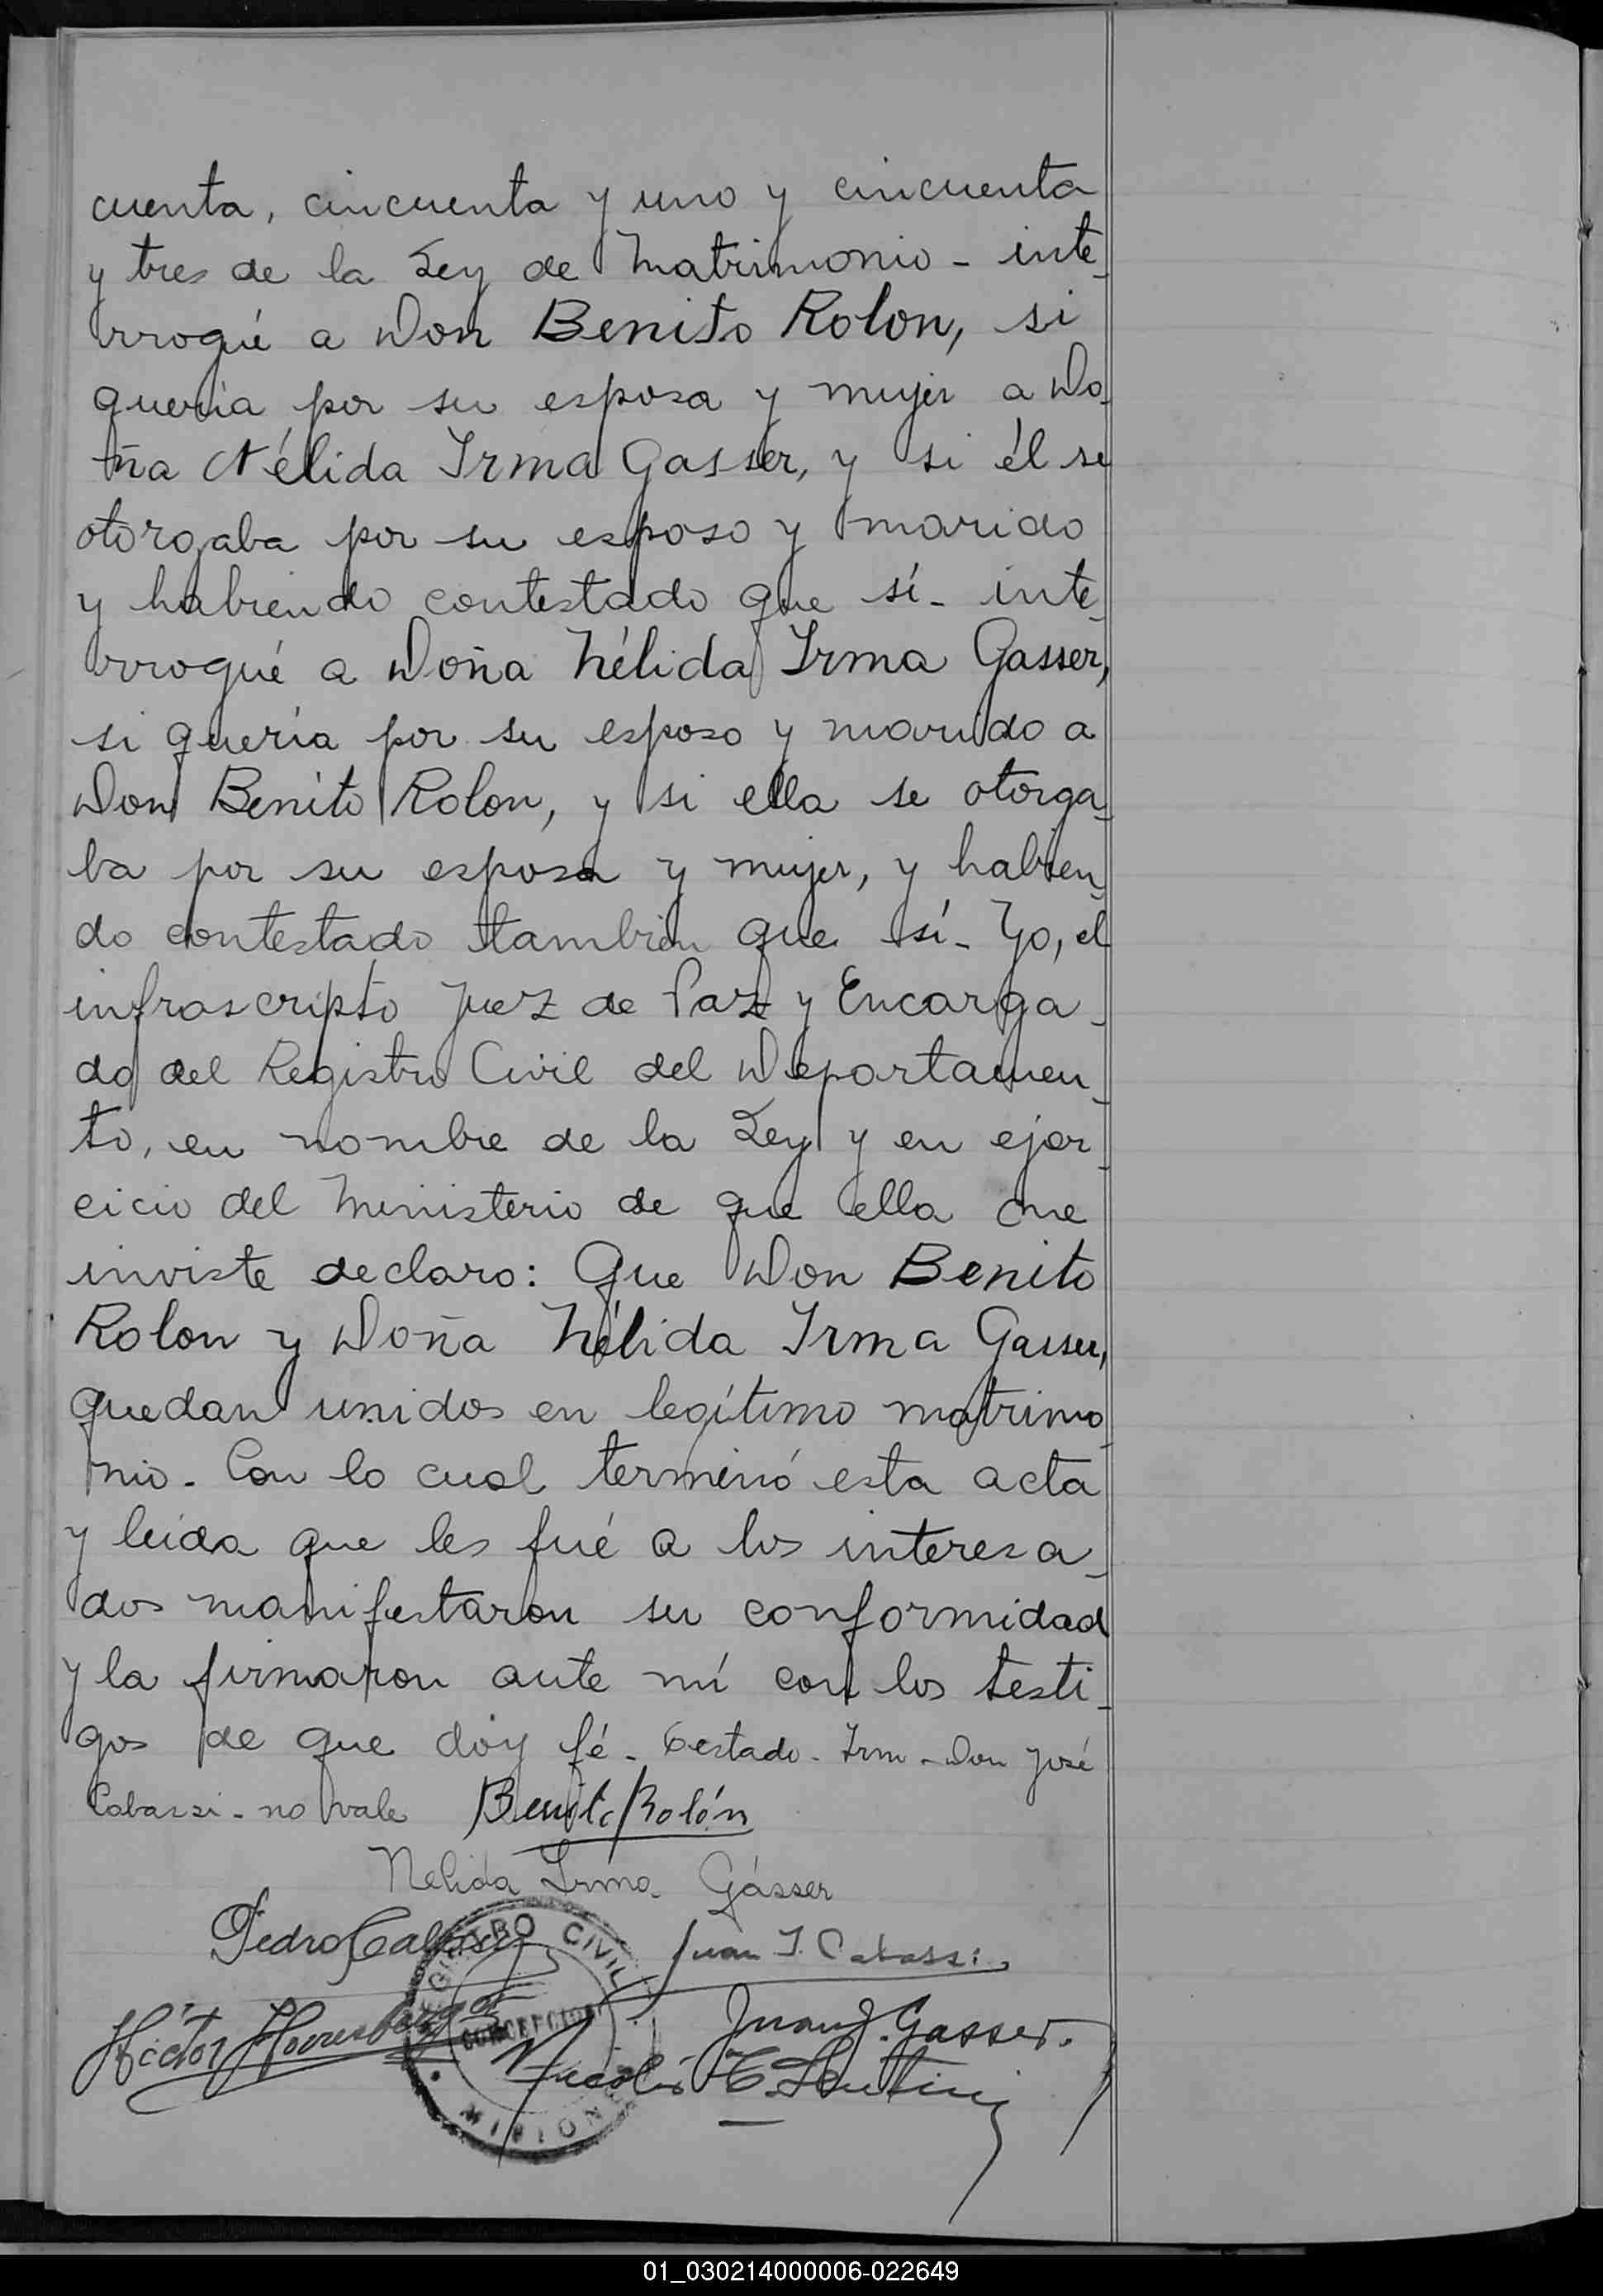 cuenta, cincuenta y uno y cincuenta
y tres de la Ley de Matrimonio - inte-
rrogué a Don Benito Rolon, si
quería por su esposa y mujer a Do-
ña Nélida Irma Gasser, y si él se
otorgaba por su esposo y marido
y habiendo contestado que sí - inte-
rrogué a Doña Nélida Irma Gasser,
si quería por su esposo y marido a
Don Benito Rolon, y si ella se otorga-
ba por su esposa y mujer, y habien-
do contestado tambien que sí - Yo, el
infrascripto Juez de Paz y Encarga-
do del Registro Civil del Departamen-
to, en nombre de la Ley y en ejer-
cicio del Ministerio de que ella me
inviste declaro: Que Don Benito
Rolon y Doña Nélida Irma Gasser,
quedan unidos en legítimo matrimo-
nio - Con lo cual terminó esta acta
y leída que les fué a los interesa-
dos manifestaron su conformidad
y la firmaron ante mí con los testi-
gos de que doy fé - Testado - Irm - Don José
Cabassi - no vale Benito Rolón
Nelida Irma Gásser
Pedro Juan J. Cabassi
REGISTRO CIVIL
CONCEPCION
MISIONES
Héctor Juan J. Gasser.
Nicolás
01_030214000006-022649